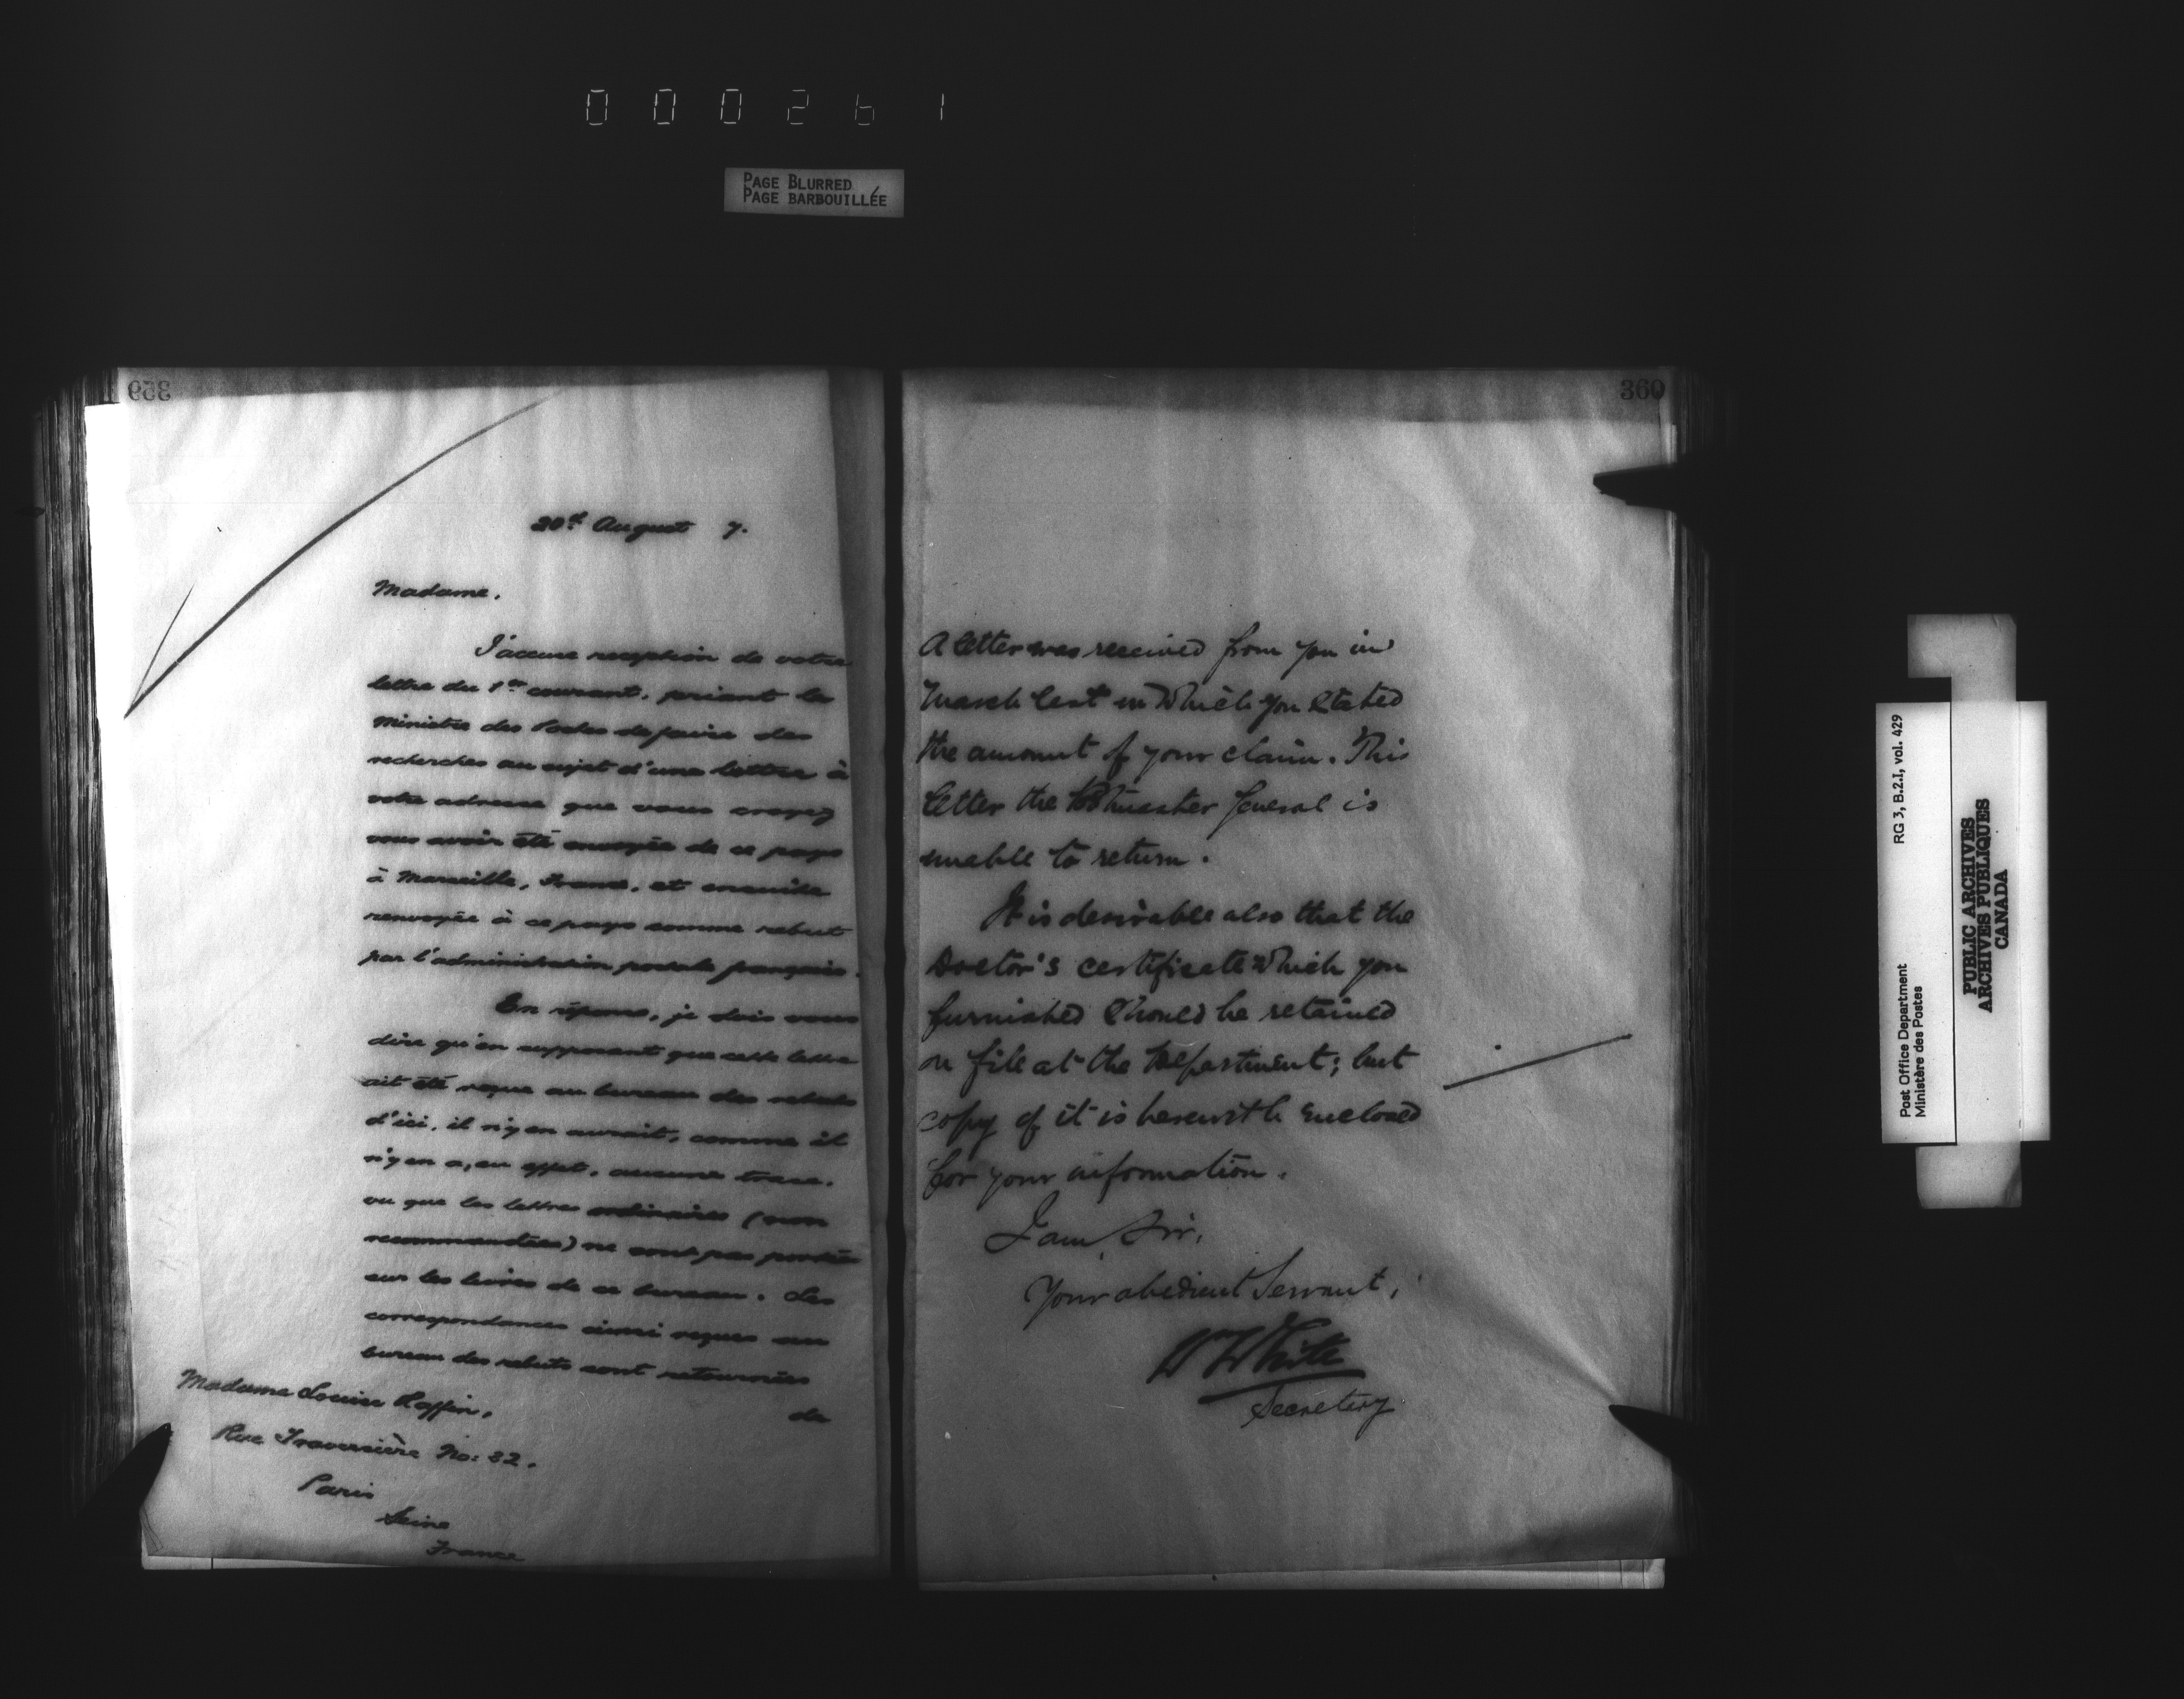 000261
PAGE BLURRED
PAGE BARBOUILLÉE
359
20th August 7.
Madame,
J'accuse reception de votre
lettre du 1er courant, priant le
Ministre des Postes de faire des
recherches au sujet d'une lettre à
votre adresse que vous croyez
vous avoir été envoyée de ce pays
à Marseille, France, et ensuite
renvoyée à ce pays comme rebut
par l'administration postale française.
En réponse, je dois vous
dire qu'en supposant que cette lettre
ait été reçue au bureau des rebuts
d'ici, il n'y en aurait, comme il
n'y en a, en effet, aucune trace,
vu que les lettres ordinaires (non
recommandées) ne sont pas portées
sur les livres de ce bureau. Les
correspondances ainsi reçues au
bureau des rebuts sont retournées
de
Madame Louise Raffin,
Rue Traversière No: 32.
Paris
Seine
France
360
A letter was received from you in
March last in which you stated
the amount of your claim. This
letter the Postmaster General is
unable to return.
It is desirable also that the
Doctor's certificate which you
furnished should be retained
on file at the Department; but
copy of it is herewith enclosed
for your information.
I am, Sir,
Your obedient Servant,
W White
Secretary
Post Office Department
Ministère des Postes
RG 3, B.2.I, vol. 429
PUBLIC ARCHIVES
ARCHIVES PUBLIQUES
CANADA